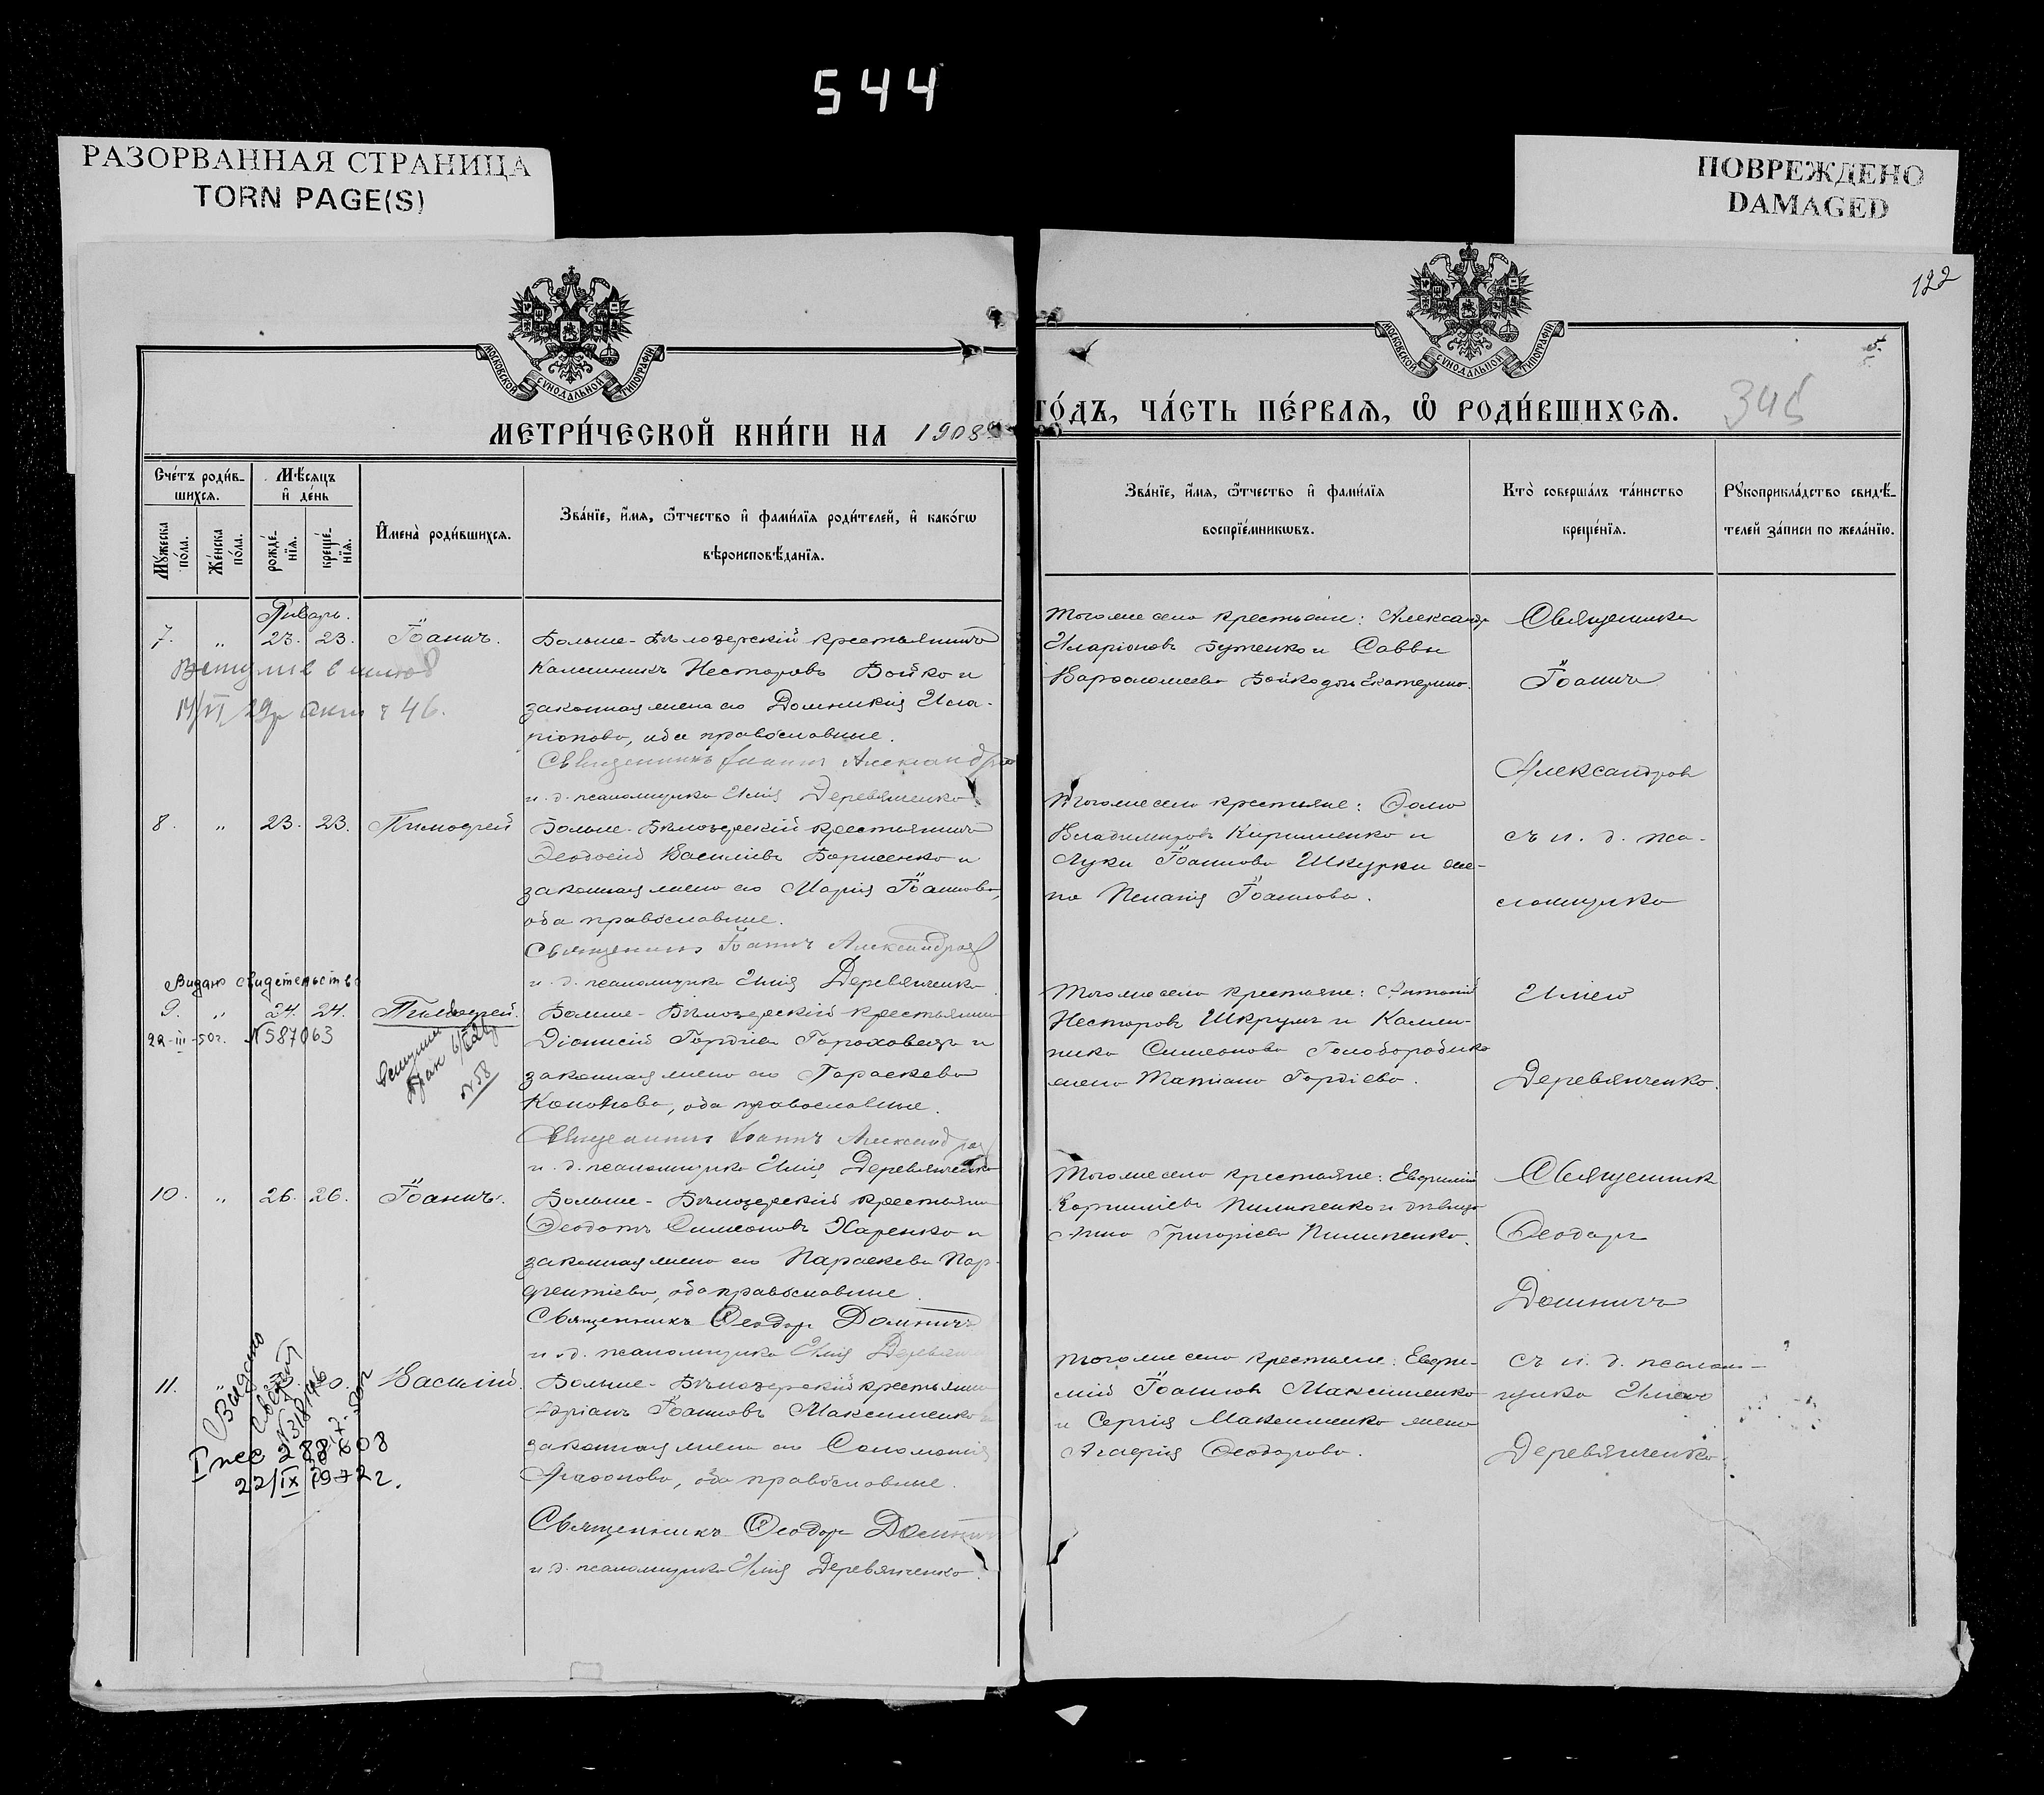 544
РАЗОРВАННАЯ СТРАНИЦА
TORN PAGE(S)
ПОВРЕЖДЕНО
DAMAGED
122
МОСКОВСКОЙ СУНОДАЛЬНОЙ ТИПОГРАФІИ
МОСКОВСКОЙ СУНОДАЛЬНОЙ ТИПОГРАФІИ
345
МЕТРИ́ЧЕСКОЙ КНИ́ГИ НА 1908
ГО́ДЪ, ЧА́СТЬ ПЕ́РВАѦ, Ѽ РОДИ́ВШИХСѦ.
Сче́тъ роди́в-
шихсѧ.
Мѣ́сѧцъ
и҆ де́нь
Мꙋ́жеска
по́ла.
Же́нска
по́ла.
рожде́-
нїѧ.
креще́-
нїѧ.
И҆мена̀ роди́вшихсѧ.
Зва́нїе, и҆́мѧ, ѻ҆́тчество и҆ фами́лїѧ роди́телей, и҆ како́гѡ
вѣроисповѣ́данїѧ.
Зва́нїе, и҆́мѧ, ѻ҆́тчество и҆ фами́лїѧ
воспрїе́мникѡвъ.
Кто̀ соверша́лъ та́инство
креще́нїѧ.
Рꙋкоприкла́дство свидѣ́-
телей за́писи по жела́нїю.
Январь.
7. „ 23. 23. Іоаннъ.
Больше-Бѣлозерскій крестьянинъ
Калинникъ Несторовъ Бойко и
законная жена его Домникія Ила-
ріонова, оба православные.
Священникъ Іоаннъ Александровъ
и. д. псаломщика Илія Деревянченко
14/VI 29р 46.
Тогоже села крестьяне: Александръ
Иларіоновъ Бутенко и Саввы
Варфоломеева Бойко дочь Екатерина.
Священникъ
Іоаннъ
Александровъ
съ и. д. пса-
ломщика
Иліею
Деревянченко.
8. „ 23. 23. Тимофей
Больше-Бѣлозерскій крестьянинъ
Феодосій Василіевъ Борисенко и
законная жена его Марія Іоаннова,
оба православные.
Священникъ Іоаннъ Александровъ
и. д. псаломщика Илія Деревянченко
Тогоже села крестьяне: Фома
Владимировъ Кириленко и
Луки Іоаннова Шкурки же-
на Пелагія Іоаннова.
Видано свидетельство
9. „ 24. 24. Тимофей.
22-III-50г. №587063
№58
Больше-Бѣлозерскій крестьянинъ
Діонисій Гордіевъ Гороховецъ и
законная жена его Параскева
Кононова, оба православные.
Священникъ Іоаннъ Александровъ
и. д. псаломщика Илія Деревянченко
Тогоже села крестьяне: Антоній
Несторовъ Шкрумъ и Каллин-
ника Симеонова Голобородько
жена Татіана Гордіева.
10. „ 26. 26. Іоаннъ.
Больше-Бѣлозерскій крестьянинъ
Феодотъ Симеоновъ Харенко и
законная жена его Параскева Пар-
фентіева, оба православные.
Священникъ Феодоръ Домничъ
и. д. псаломщика Илія Деревянченко
Тогоже села крестьяне: Евфимій
Корниліевъ Пилипенко и дѣвица
Анна Григоріева Пилипенко.
Священникъ
Феодоръ
Домничъ
съ и. д. псалом-
щика Иліею
Деревянченко.
11. Василій.
Видано
I пес 288608
22/IX 1972г.
Больше-Бѣлозерскій крестьянинъ
Адріанъ Іоанновъ Максименко и
законная жена его Соломонія
Агафонова, оба православные.
Священникъ Феодоръ Домничъ
и. д. псаломщика Илія Деревянченко.
Тогоже села крестьяне: Евфи-
мій Іоанновъ Максименко
и Сергія Максименко жена
Агафія Феодорова.